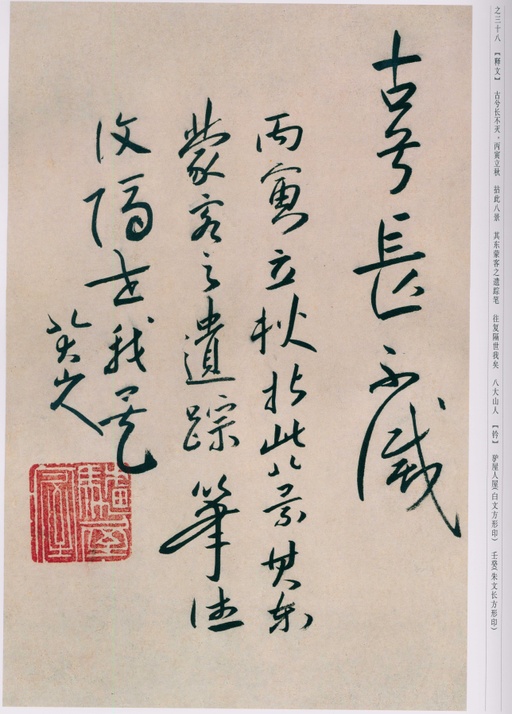 之三十八 【释文】 古兮长不灭，丙寅立秋 拈此八景 其东蒙客之遗踪笔 往复隔世我矣 八大山人 【钤】 驴屋人屋(白文方形印) 壬癸(朱文长方形印)
古兮長不滅
丙寅立秋拈此八景其东
蒙客之遺踪筆往
復隔世我矣
八大山人